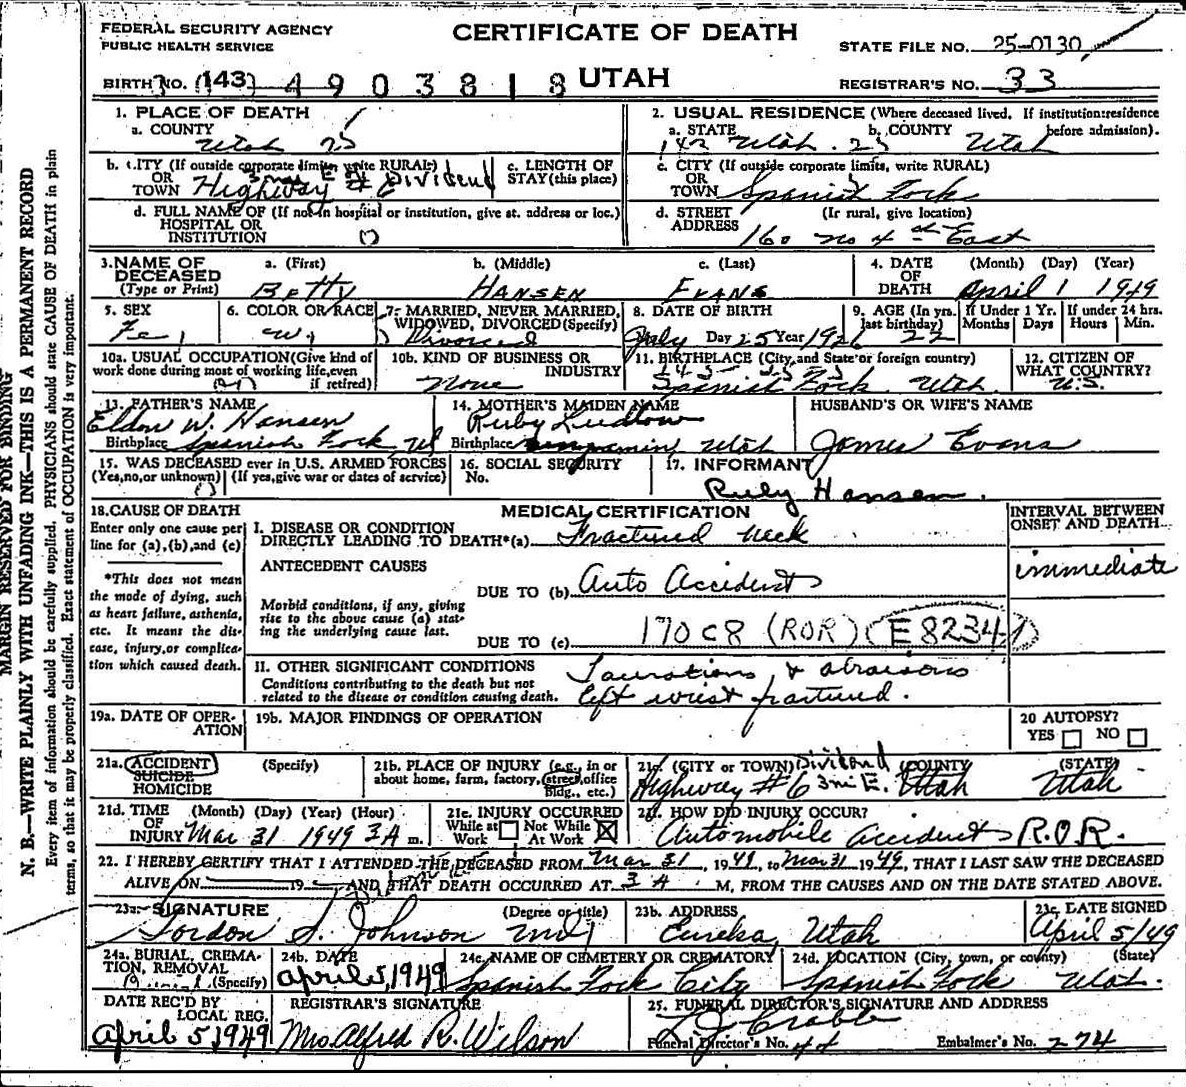 FEDERAL SECURITY AGENCY
PUBLIC HEALTH SERVICE
CERTIFICATE OF DEATH
STATE FILE NO. 25-0130
BIRTH NO. (143) 4 9 0 3 8 1 8 UTAH
REGISTRAR'S NO. 33
1. PLACE OF DEATH
a. COUNTY
Utah 25
2. USUAL RESIDENCE (Where deceased lived. If institution:residence before admission).
a. STATE b. COUNTY
142 Utah. 25 Utah
b. CITY (If outside corporate limits write RURAL)
OR
TOWN Highway #6 3 mi E Dividend
c. LENGTH OF STAY (this place)
c. CITY (If outside corporate limits, write RURAL)
OR
TOWN Spanish Fork
d. FULL NAME OF (If not in hospital or institution, give st. address or loc.)
HOSPITAL OR
INSTITUTION
d. STREET (Ir rural, give location)
ADDRESS 160 no 4th East
3. NAME OF DECEASED
(Type or Print)
a. (First) b. (Middle) c. (Last)
Betty Hansen Evans
4. DATE OF DEATH (Month) (Day) (Year)
April 1 1949
5. SEX
Fe.
6. COLOR OR RACE
W.
7. MARRIED, NEVER MARRIED, WIDOWED, DIVORCED (Specify)
Divorced
8. DATE OF BIRTH
July Day 25 Year 1926
9. AGE (In yrs. last birthday)
22
If Under 1 Yr. Months Days
If under 24 hrs. Hours Min.
10a. USUAL OCCUPATION (Give kind of work done during most of working life, even if retired)
10b. KIND OF BUSINESS OR INDUSTRY
None
11. BIRTHPLACE (City, and State or foreign country)
Spanish Fork Utah
12. CITIZEN OF WHAT COUNTRY?
U.S.
13. FATHER'S NAME
Eldon W. Hansen
Birthplace Spanish Fork Ut
14. MOTHER'S MAIDEN NAME
Ruby Ludlow
Birthplace Benjamin Utah
HUSBAND'S OR WIFE'S NAME
James Evans
15. WAS DECEASED ever in U.S. ARMED FORCES
(Yes, no, or unknown) (If yes, give war or dates of service)
16. SOCIAL SECURITY
No.
17. INFORMANT
Ruby Hansen.
18. CAUSE OF DEATH
Enter only one cause per line for (a), (b), and (c)
*This does not mean the mode of dying, such as heart failure, asthenia, etc. It means the disease, injury, or complication which caused death.
MEDICAL CERTIFICATION
I. DISEASE OR CONDITION
DIRECTLY LEADING TO DEATH*(a) Fractured neck
ANTECEDENT CAUSES
DUE TO (b) Auto Accident
Morbid conditions, if any, giving rise to the above cause (a) stating the underlying cause last.
DUE TO (c) 170C8 (ROR) E8234
INTERVAL BETWEEN ONSET AND DEATH
immediate
II. OTHER SIGNIFICANT CONDITIONS
Conditions contributing to the death but not related to the disease or condition causing death.
& abraisons
left wrist fractured.
19a. DATE OF OPERATION
19b. MAJOR FINDINGS OF OPERATION
20 AUTOPSY?
YES NO
21a. ACCIDENT (Specify)
SUICIDE
HOMICIDE
21b. PLACE OF INJURY (e.g., in or about home, farm, factory, street, office Bldg., etc.)
21c. (CITY OR TOWN) (COUNTY) (STATE)
Highway #6 3mi E. Dividend Utah Utah
21d. TIME OF INJURY (Month) (Day) (Year) (Hour)
Mar 31 1949 3 A m.
21e. INJURY OCCURRED
While at Work Not While At Work
21f. HOW DID INJURY OCCUR?
Automobile accident R.O.R.
22. I HEREBY CERTIFY THAT I ATTENDED THE DECEASED FROM Mar 31, 1949, to Mar 31 1949, THAT I LAST SAW THE DECEASED
ALIVE ON 19 AND THAT DEATH OCCURRED AT 3 A M, FROM THE CAUSES AND ON THE DATE STATED ABOVE.
23a. SIGNATURE (Degree or title)
Gordon S. Johnson MD
23b. ADDRESS
Eureka, Utah
23c. DATE SIGNED
April 5/49
24a. BURIAL, CREMATION, REMOVAL (Specify)
Burial
24b. DATE
April 5, 1949
24c. NAME OF CEMETERY OR CREMATORY
Spanish Fork City
24d. LOCATION (City, town, or county) (State)
Spanish Fork Utah.
DATE REC'D BY LOCAL REG.
April 5, 1949
REGISTRAR'S SIGNATURE
Mrs. Alfred R. Wilson
25. FUNERAL DIRECTOR'S SIGNATURE AND ADDRESS
Funeral Director's No. 44 Embalmer's No. 274
MARGIN RESERVED FOR BINDING
N. B.—WRITE PLAINLY WITH UNFADING INK—THIS IS A PERMANENT RECORD
Every item of information should be carefully supplied. PHYSICIANS should state CAUSE OF DEATH in plain
terms, so that it may be properly classified. Exact statement of OCCUPATION is very important.